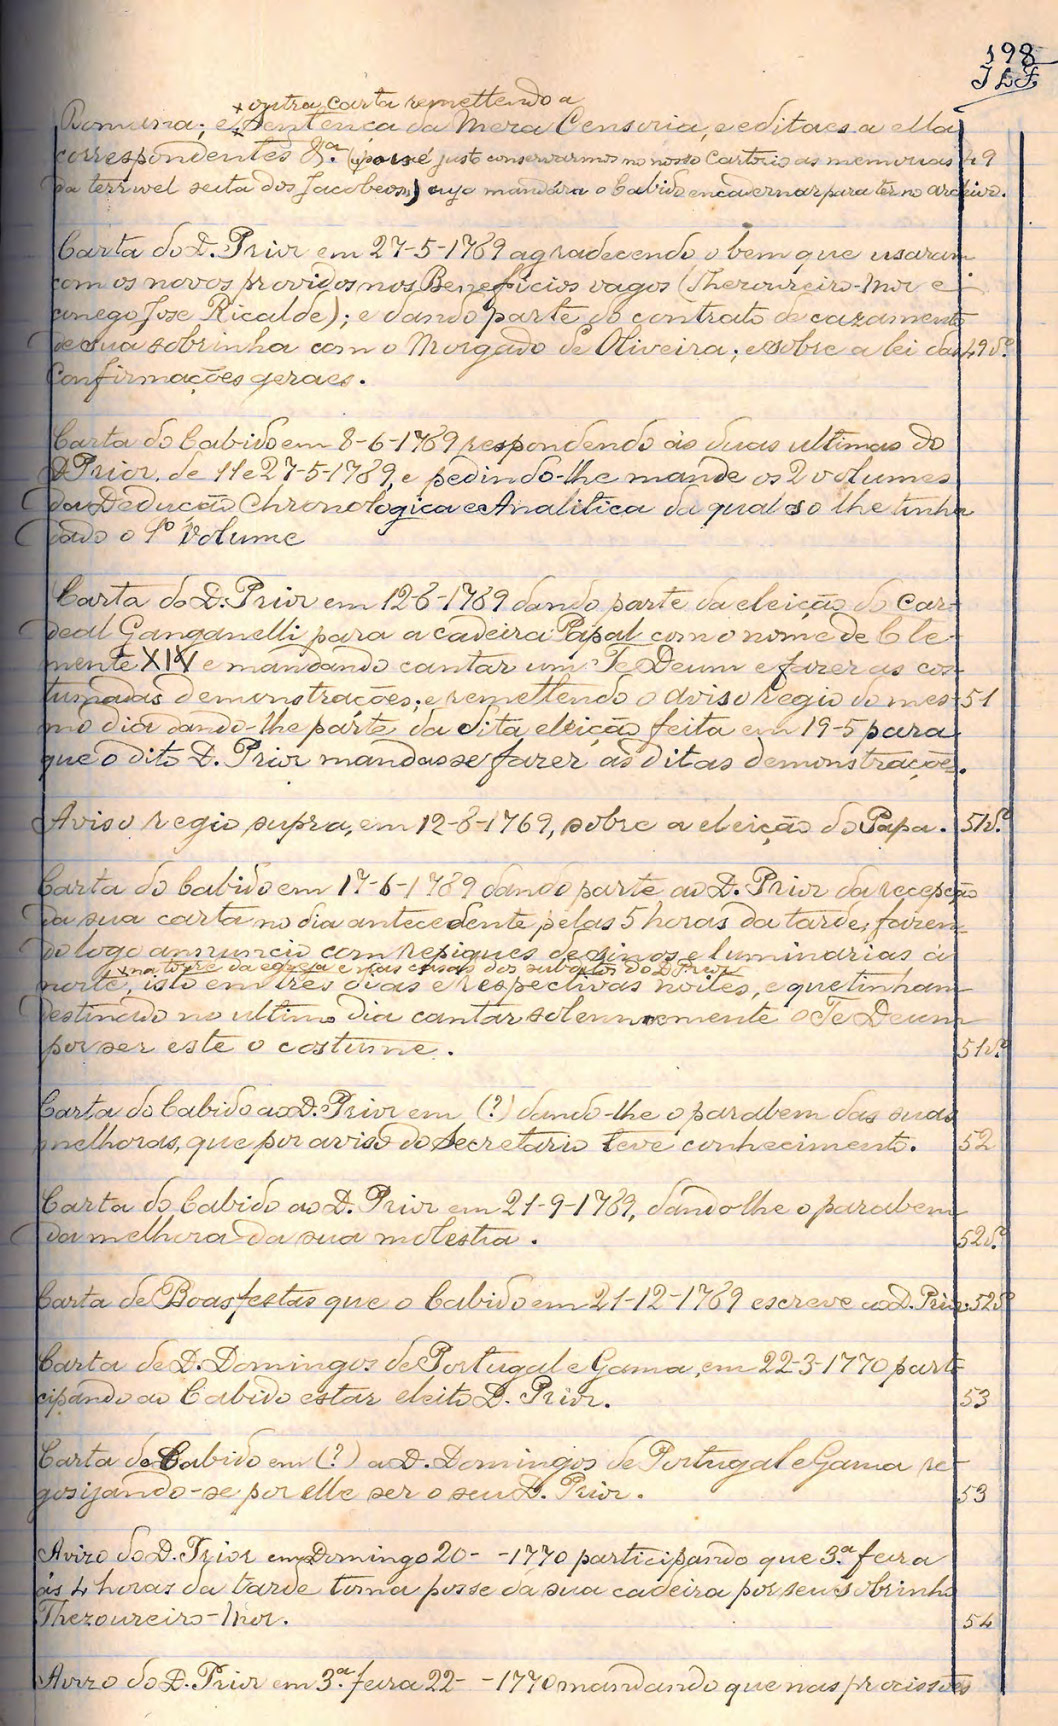 198
J L F
× outra carta remettendo a
Romana; e × Sentença da Meza Censoria, e editaes a ella
correspondentes &.ª (por sé justo conservarmos no nosso Cartorio as memorias 49
da terrivel seita dos Jacobeos) cujo mandára o Cabido encadernar para ter no archivo.
Carta do D. Prior em 27-5-1769 agradecendo o bem que usaram
com os novos providos nos Beneficios vagos (Thezoureiro-Mor e
conego Jose Ricalde); e dando parte do contrato de cazamento
de sua sobrinha com o Morgado de Oliveira; e sobre a lei das 49 v.º
Confirmações geraes.
Carta do Cabido em 8-6-1769 respondendo ás duas ultimas do
D. Prior. de 11 e 27-5-1769, e pedindo-lhe mande os 2 volumes
da Dedução Chronologica e Analitica da qual só lhe tinha
dado o 1º volume
Carta do D. Prior em 12-6-1769 dando parte da eleição do Car-
deal Ganganelli para a cadeira Papal com o nome de Cle-
mente XIV e mandando cantar um Te Deum e fazer as cos-
tumadas demonstrações; e remettendo o aviso regio do mes- 51
mo dia dando-lhe parte da dita eleição feita em 19-5 para
que o dito D. Prior mandasse fazer as ditas demonstrações.
Aviso regio supra, em 12-6-1769, sobre a eleição do Papa. 51 v.º
Carta do Cabido em 17-6-1769 dando parte ao D. Prior da recepção
da sua carta no dia antecedente pelas 5 horas da tarde, fazen-
do logo annuncio com repiques de sinos e luminarias á
× na torre da egreja e nas casas dos subditos do D. Prior
noite, isto em tres duas e respectivas noites, e que tinham
destinado no ultimo dia cantar solemnemente o Te Deum
por ser este o costume. 51 v.º
Carta do Cabido ao D. Prior em (?) dando-lhe o parabem das suas
melhoras, que por aviso do Secretario teve conhecimento. 52
Carta do Cabido ao D. Prior em 21-9-1769, dando-lhe o parabem
da melhora da sua molestia. 52 v.º
Carta de Boas festas que o Cabido em 21-12-1769 escreve ao D. Prior. 52 v.º
Carta de D. Domingos de Portugal e Gama, em 22-3-1770 parti-
cipando ao Cabido estar eleito D. Prior. 53
Carta do Cabido em (?) a D. Domingos de Portugal e Gama re-
gosijando-se por elle ser o seu D. Prior. 53
Avizo do D. Prior em Domingo 20- -1770 participando que 3.ª feira
ás 4 horas da tarde toma posse da sua cadeira por seu sobrinho
Thezoureiro-Mor. 54
Avizo do D. Prior em 3.ª feira 22- -1770 mandando que nas procissões